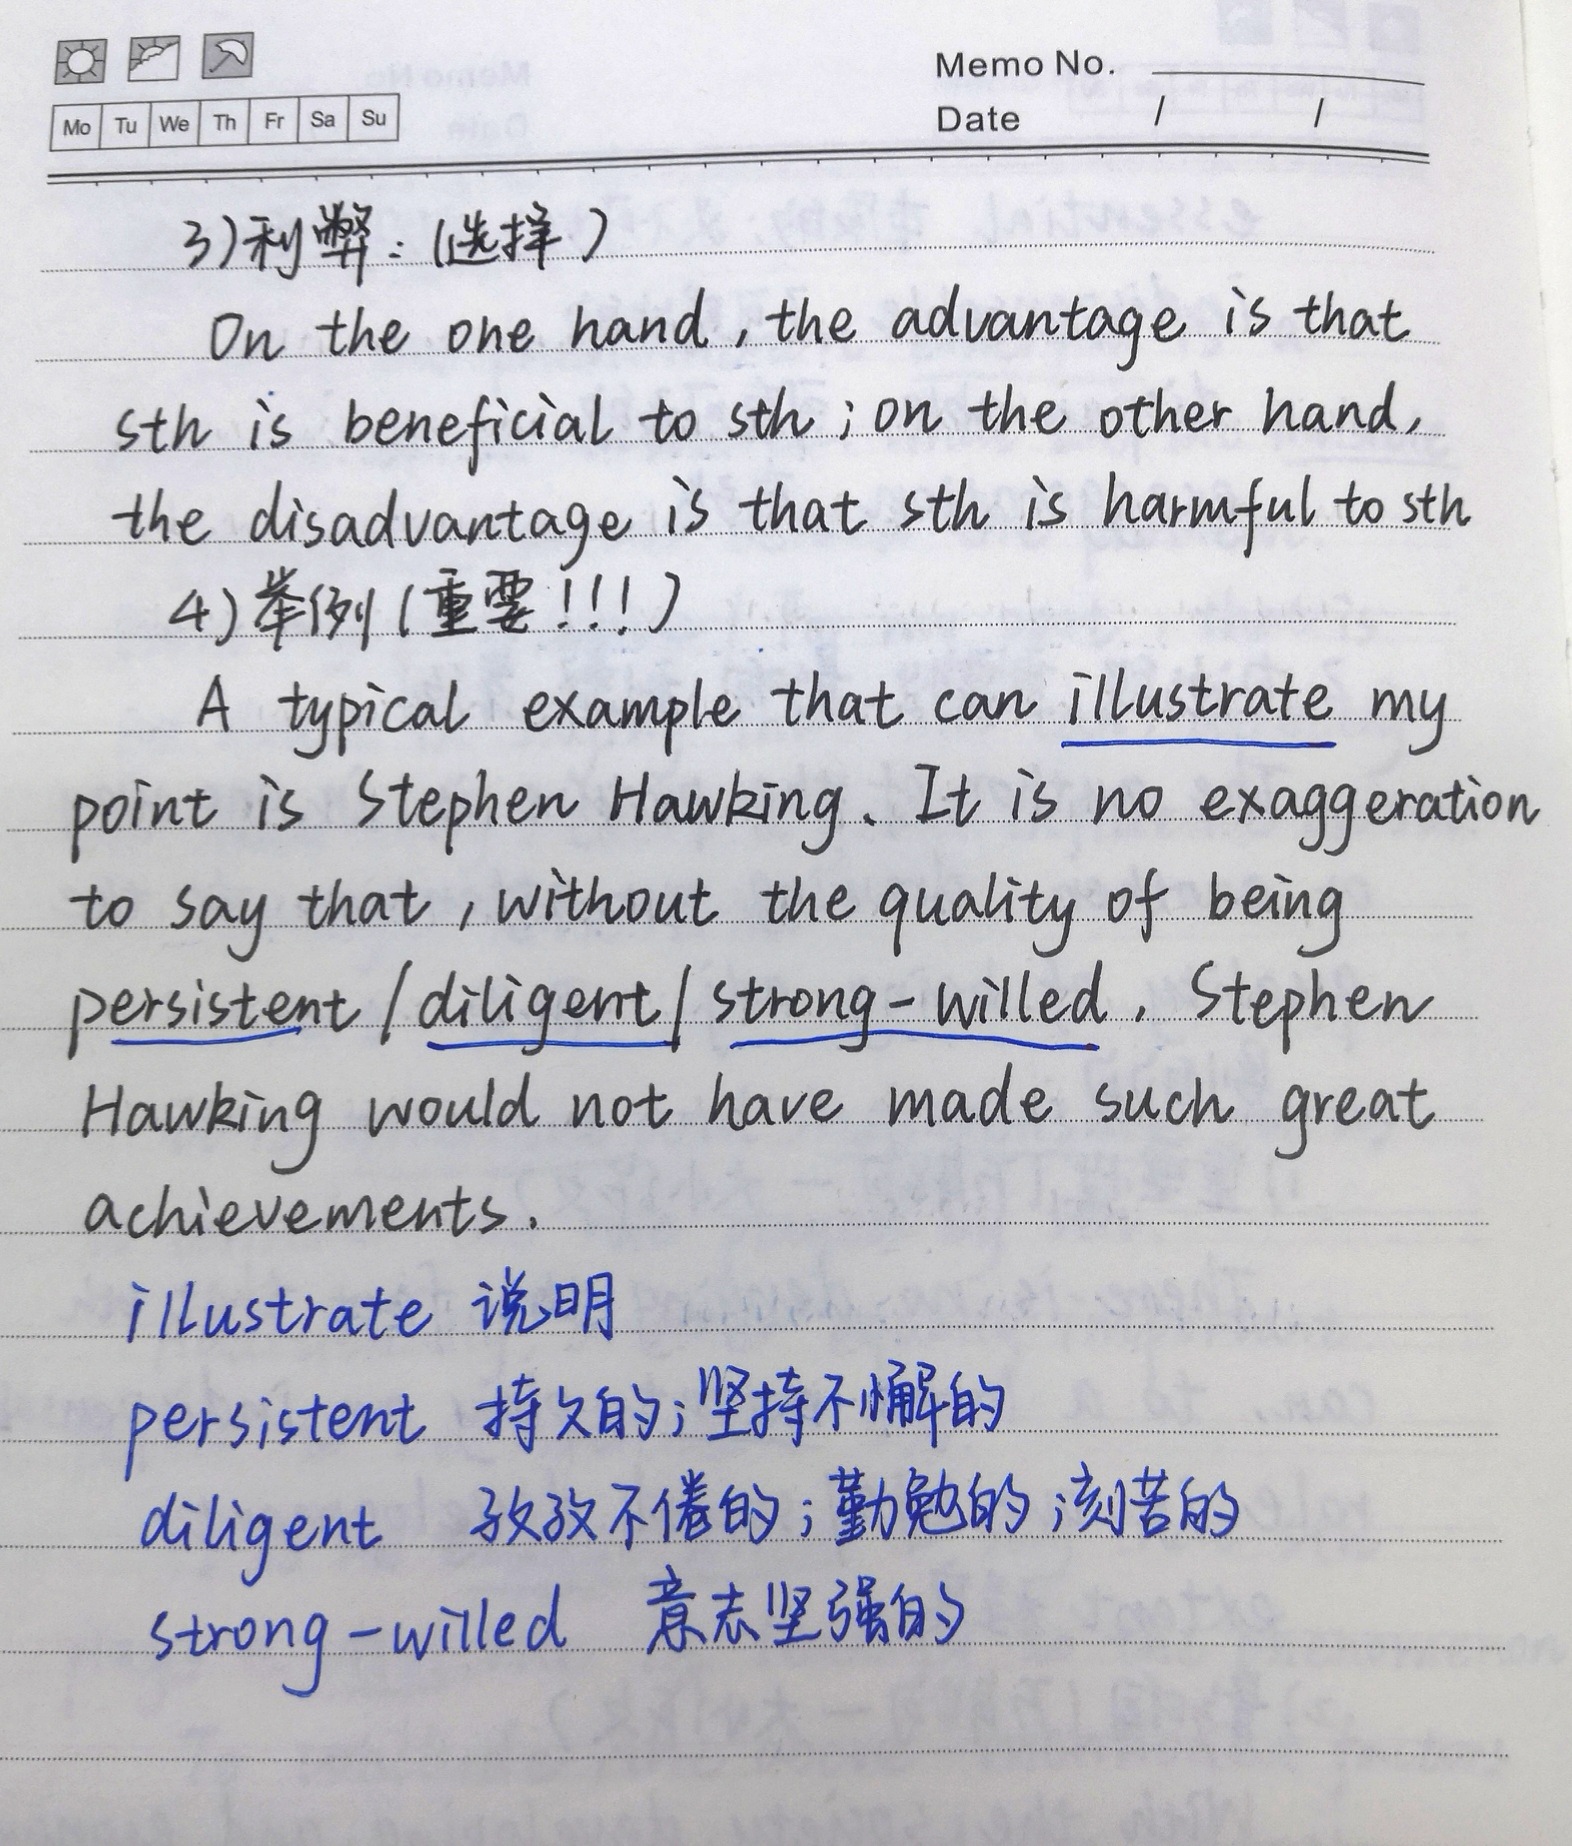 Memo No.
Mo Tu We Th Fr Sa Su
Date / /
3)利弊:(选择)
On the one hand, the advantage is that
sth is beneficial to sth; on the other hand,
the disadvantage is that sth is harmful to sth
4)举例(重要!!!)
A typical example that can illustrate my
point is Stephen Hawking. It is no exaggeration
to say that, without the quality of being
persistent/diligent/strong-willed, Stephen
Hawking would not have made such great
achievements.
illustrate 说明
persistent 持久的;坚持不懈的
diligent 孜孜不倦的;勤勉的;刻苦的
strong-willed 意志坚强的